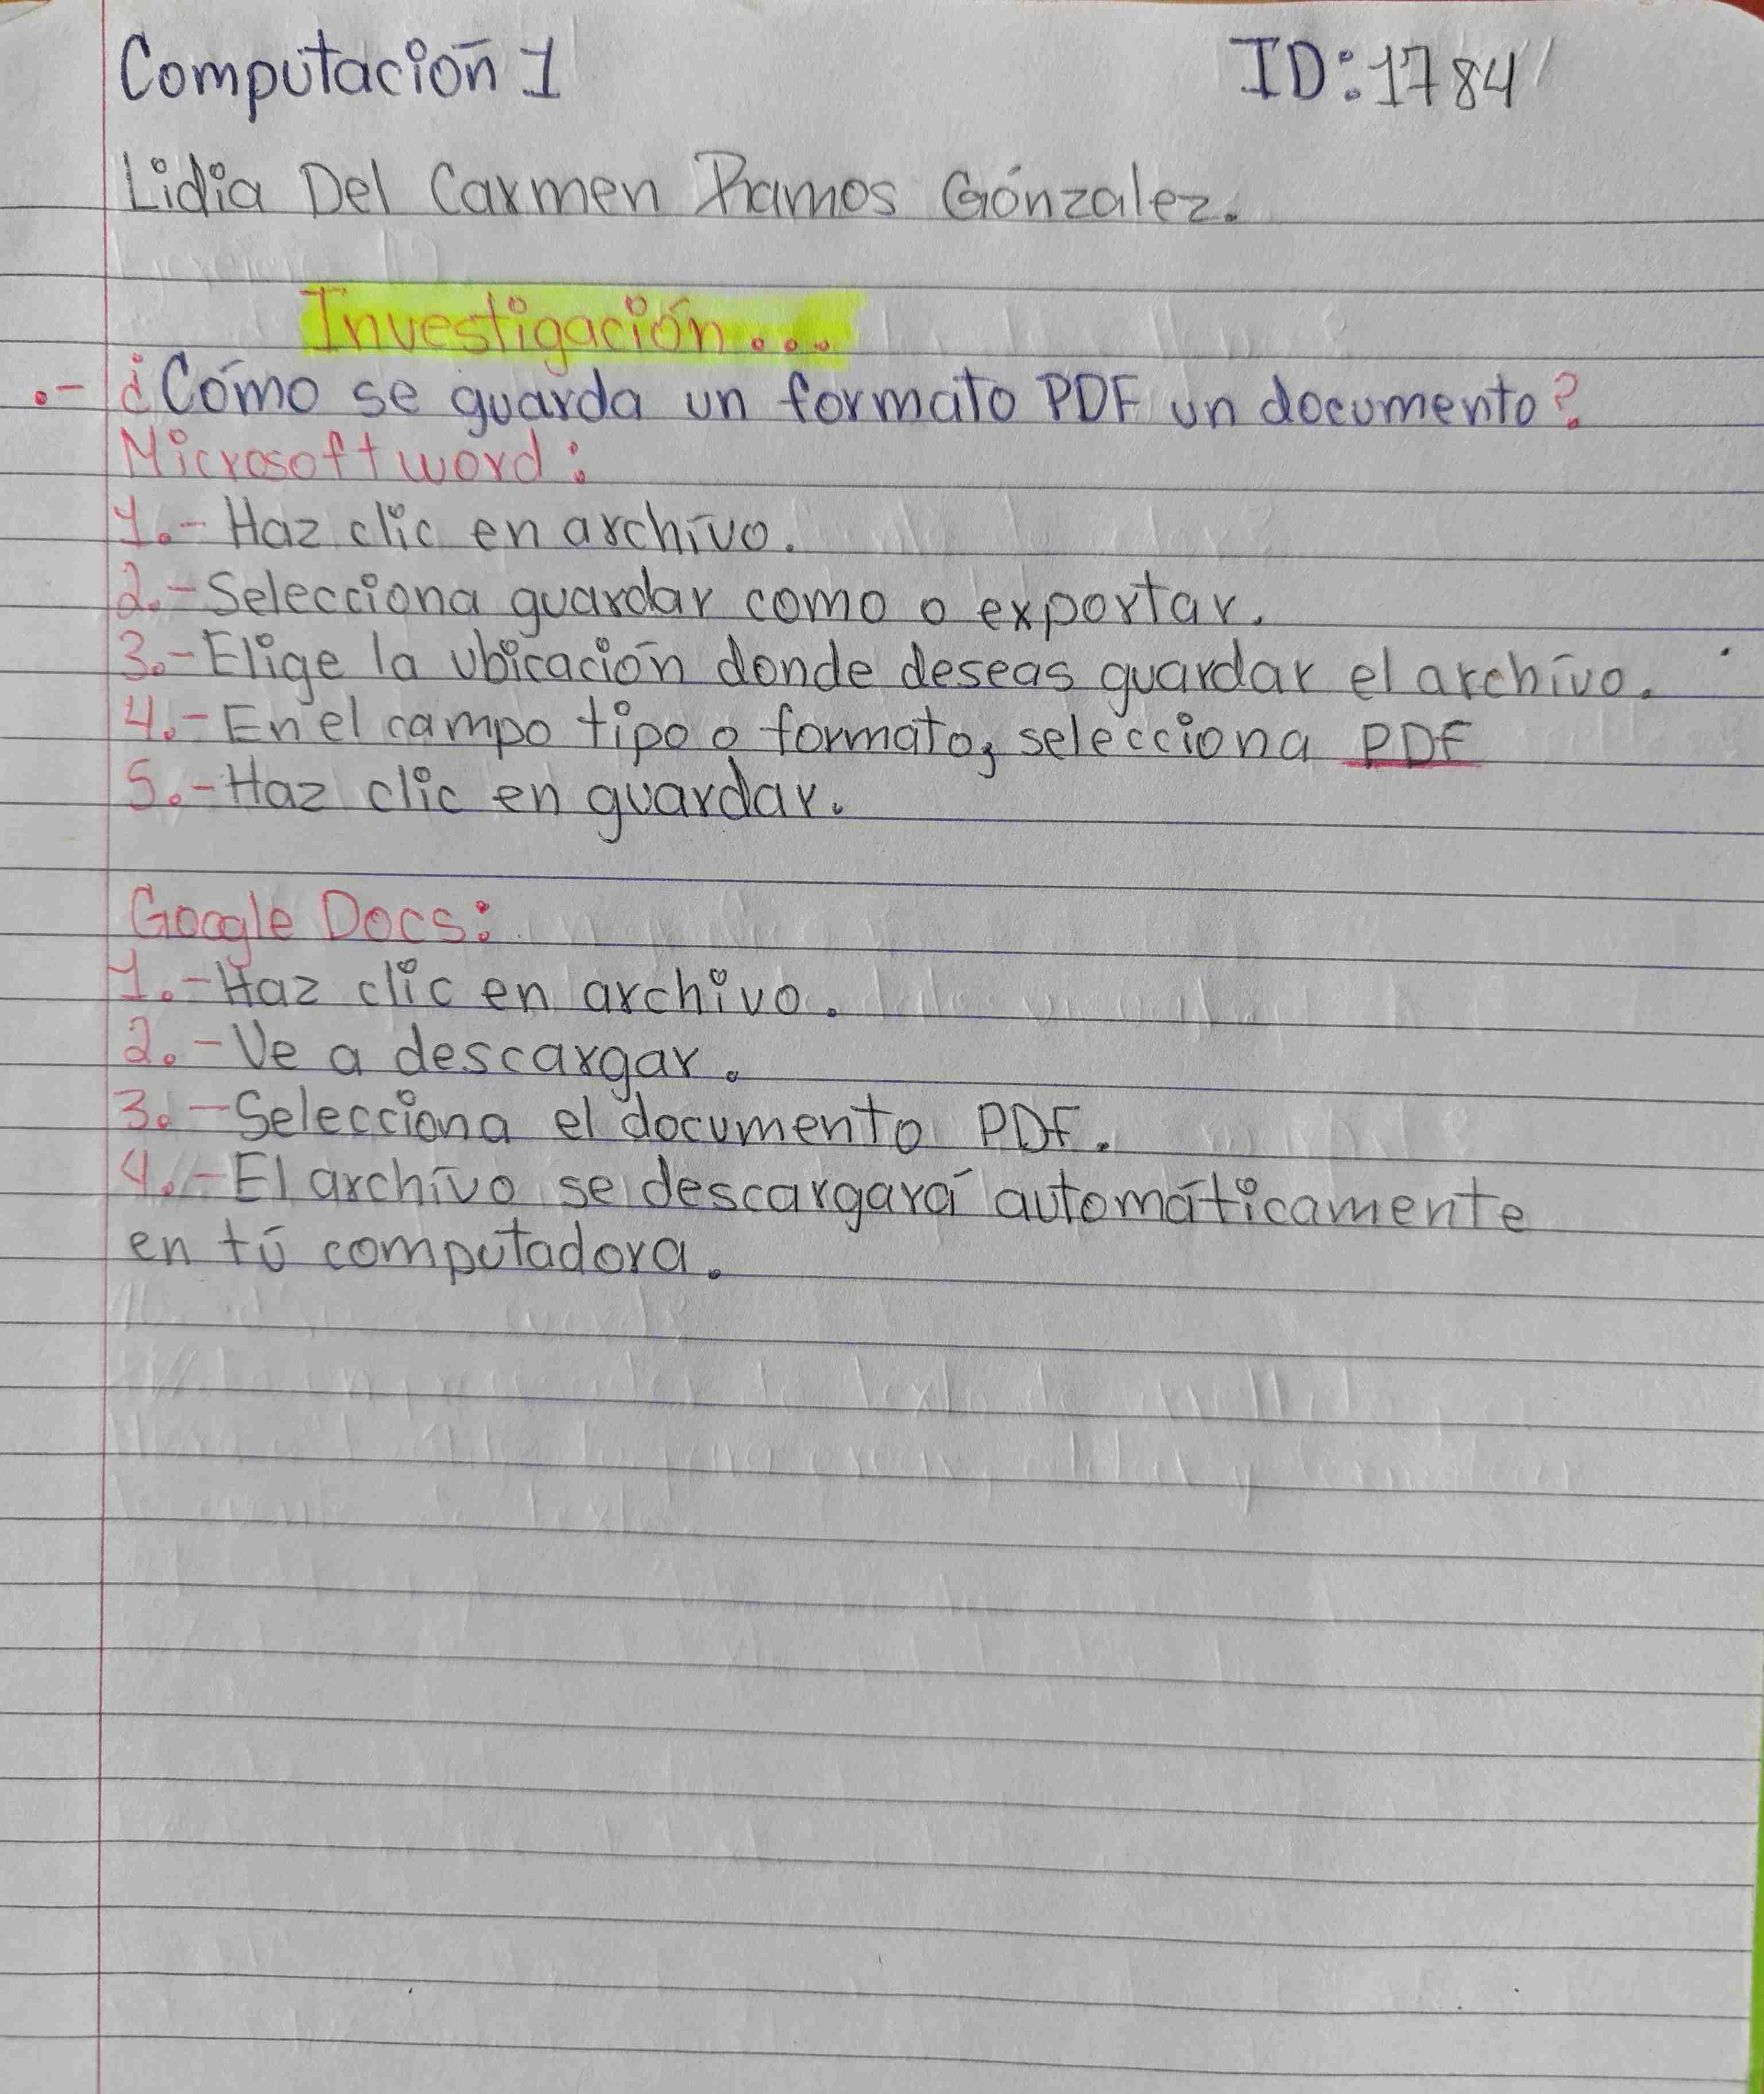 Computación 1 ID:1784
Lidia Del Carmen Ramos Gónzalez.
Investigación...
.- ¿Cómo se guarda un formato PDF un documento?
Microsoft word:
1.- Haz clic en archivo.
2.- Selecciona guardar como o exportar.
3.- Elige la ubicación donde deseas guardar el archivo.
4.- En el campo tipo o formato, selecciona PDF
5.- Haz clic en guardar.
Google Docs:
1.- Haz clic en archivo.
2.- Ve a descargar.
3.- Selecciona el documento PDF.
4.- El archivo se descargará automáticamente
en tú computadora.